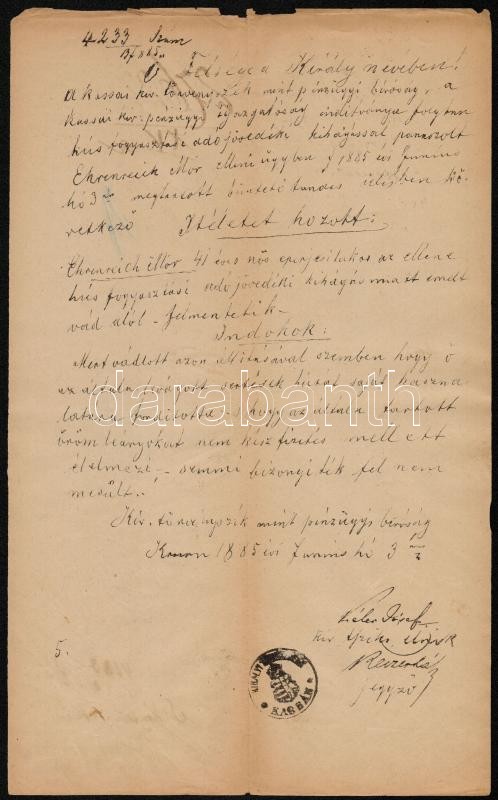 4233 Szám
1885
Ő Felsége a Király nevében!
A kassai kir. törvényszék mint pénzügyi biróság, a
kassai kir. pénzügyi igazgatóság inditványa folytán
hús fogyasztási adó jövedéki kihágással panaszolt
Ehrenreich Mór elleni ügyben 1885 évi Junius
hó 3 án megtartott büntető tanács ülésben kö
vetkező Itéletet hozott:
Ehrenreich Mór 41 éves nős eperjesi lakos az ellene
hús fogyasztási adó jövedéki kihágás miatt emelt
vád alól - felmentetik -
Indokok:
Mert vádlott azon állitásával szemben hogy ő
az általa levágott sertések húsát saját haszná
latára forditotta, s hogy az általa tartott
öröm leányokat nem készfizetés mellett
élelmezi, - semmi bizonyiték fel nem
merült.
Kir. törvényszék mint pénzügyi biróság
Kassán 1885 évi Junius hó 3 án
József
kir. elnök
jegyző
5.
KASSÁN
darabanth